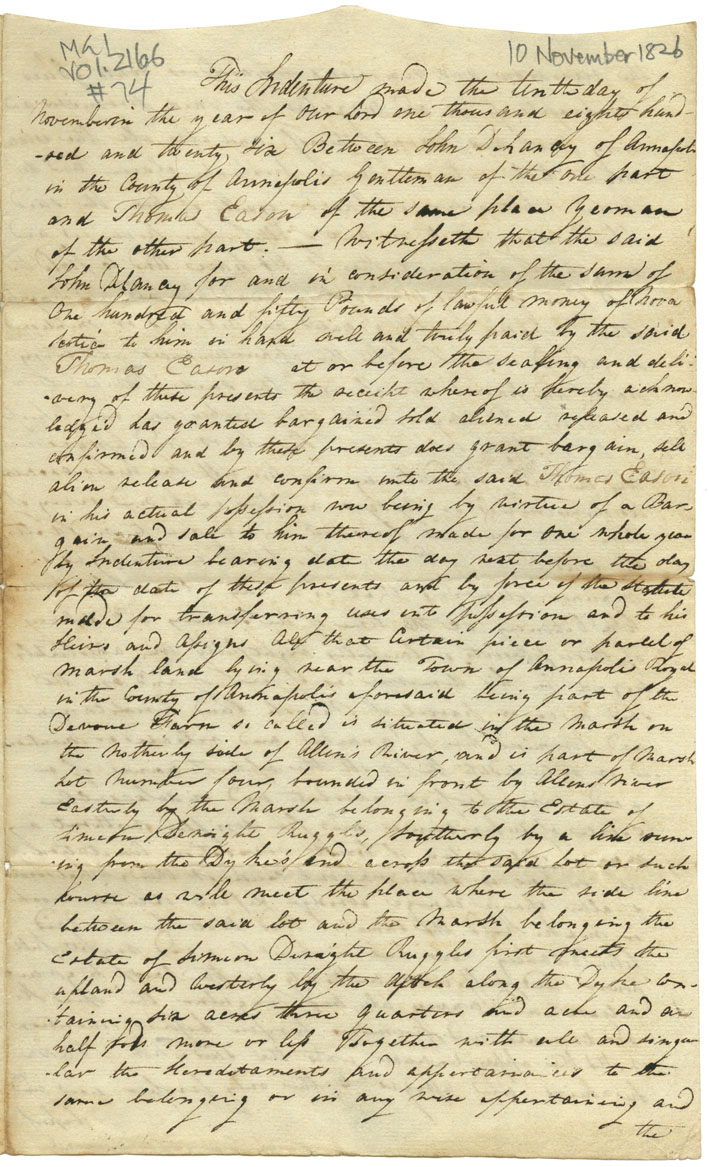 MG1
Vol. 2166
#74
10 November 1826
This Indenture made the tenth day of
November in the year of our Lord one thousand eight hund-
-red and twenty, six Between John Delancey of Annapolis
in the County of Annapolis Gentleman of the One part
and Thomas Eason of the same place Yeoman
of the other part. — Witnesseth that the said
John Dlancey for and in consideration of the sum of
One hundred and fifty Pounds of lawful money of Nova
Scotia to him in hand well and truly paid by the said
Thomas Eason at or before the sealing and deli-
-very of these presents the receipt whereof is hereby acknow-
ledged has granted bargained sold aliened released and
confirmed and by these presents does grant bargain, sell
alien release and confirm unto the said Thomas Eason
in his actual possession now being by virtue of a Bar-
gain and sale to him thereof made for one whole year
by Indenture bearing date the day next before the day
of the date of these presents and by force of the statute
made for transferring uses into possession and to his
Heirs and Assigns All that Certain piece or parcel of
marsh land lying near the Town of Annapolis Royal
in the County of Annapolis aforesaid being part of the
Devoue Farm so called is situated in the Marsh on
the Notherly side of Allen's River, and is part of Marsh
Lot Number four, bounded in front by Allens River
Easterly by the Marsh belonging to the Estate of
Simeon Dwight Ruggles, Southerly by a line runn-
-ing from the Dyke's end across the said lot or such
course as will meet the place where the side line
between the said lot and the Marsh belonging the
Estate of Simeon Dwight Ruggles first meets the
upland and Westerly by the ditch along the Dyke con-
-taining six acres three quarters and acre and an
half more or less Together with all and singu-
-lar the Hereditaments and appertainances to the
same belonging or in any wise appertaining and
the